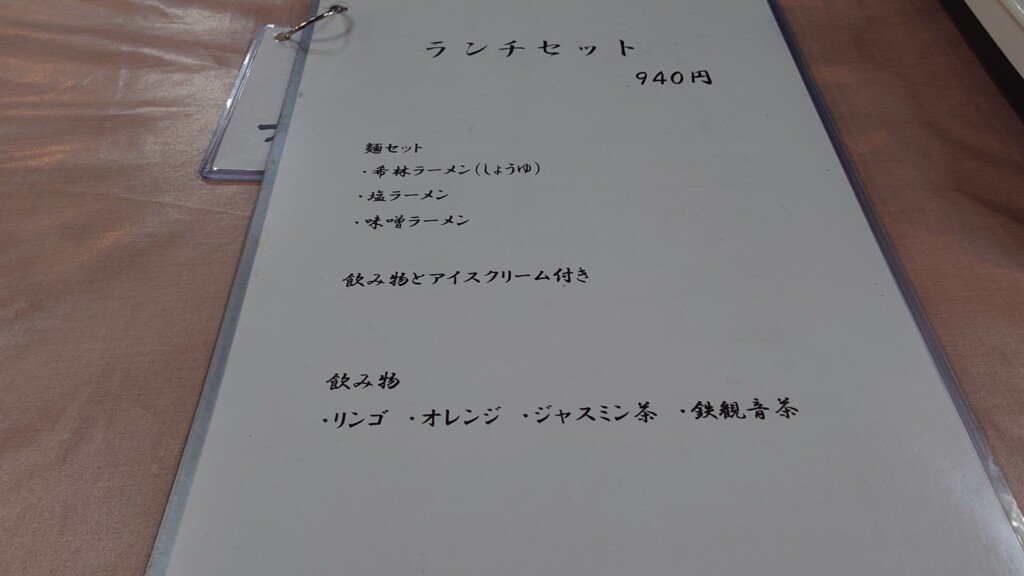 ランチセット
940円
麺セット
・希林ラーメン(しょうゆ)
・塩ラーメン
・味噌ラーメン
飲み物とアイスクリーム付き
飲み物
・リンゴ ・オレンジ ・ジャスミン茶 ・鉄観音茶